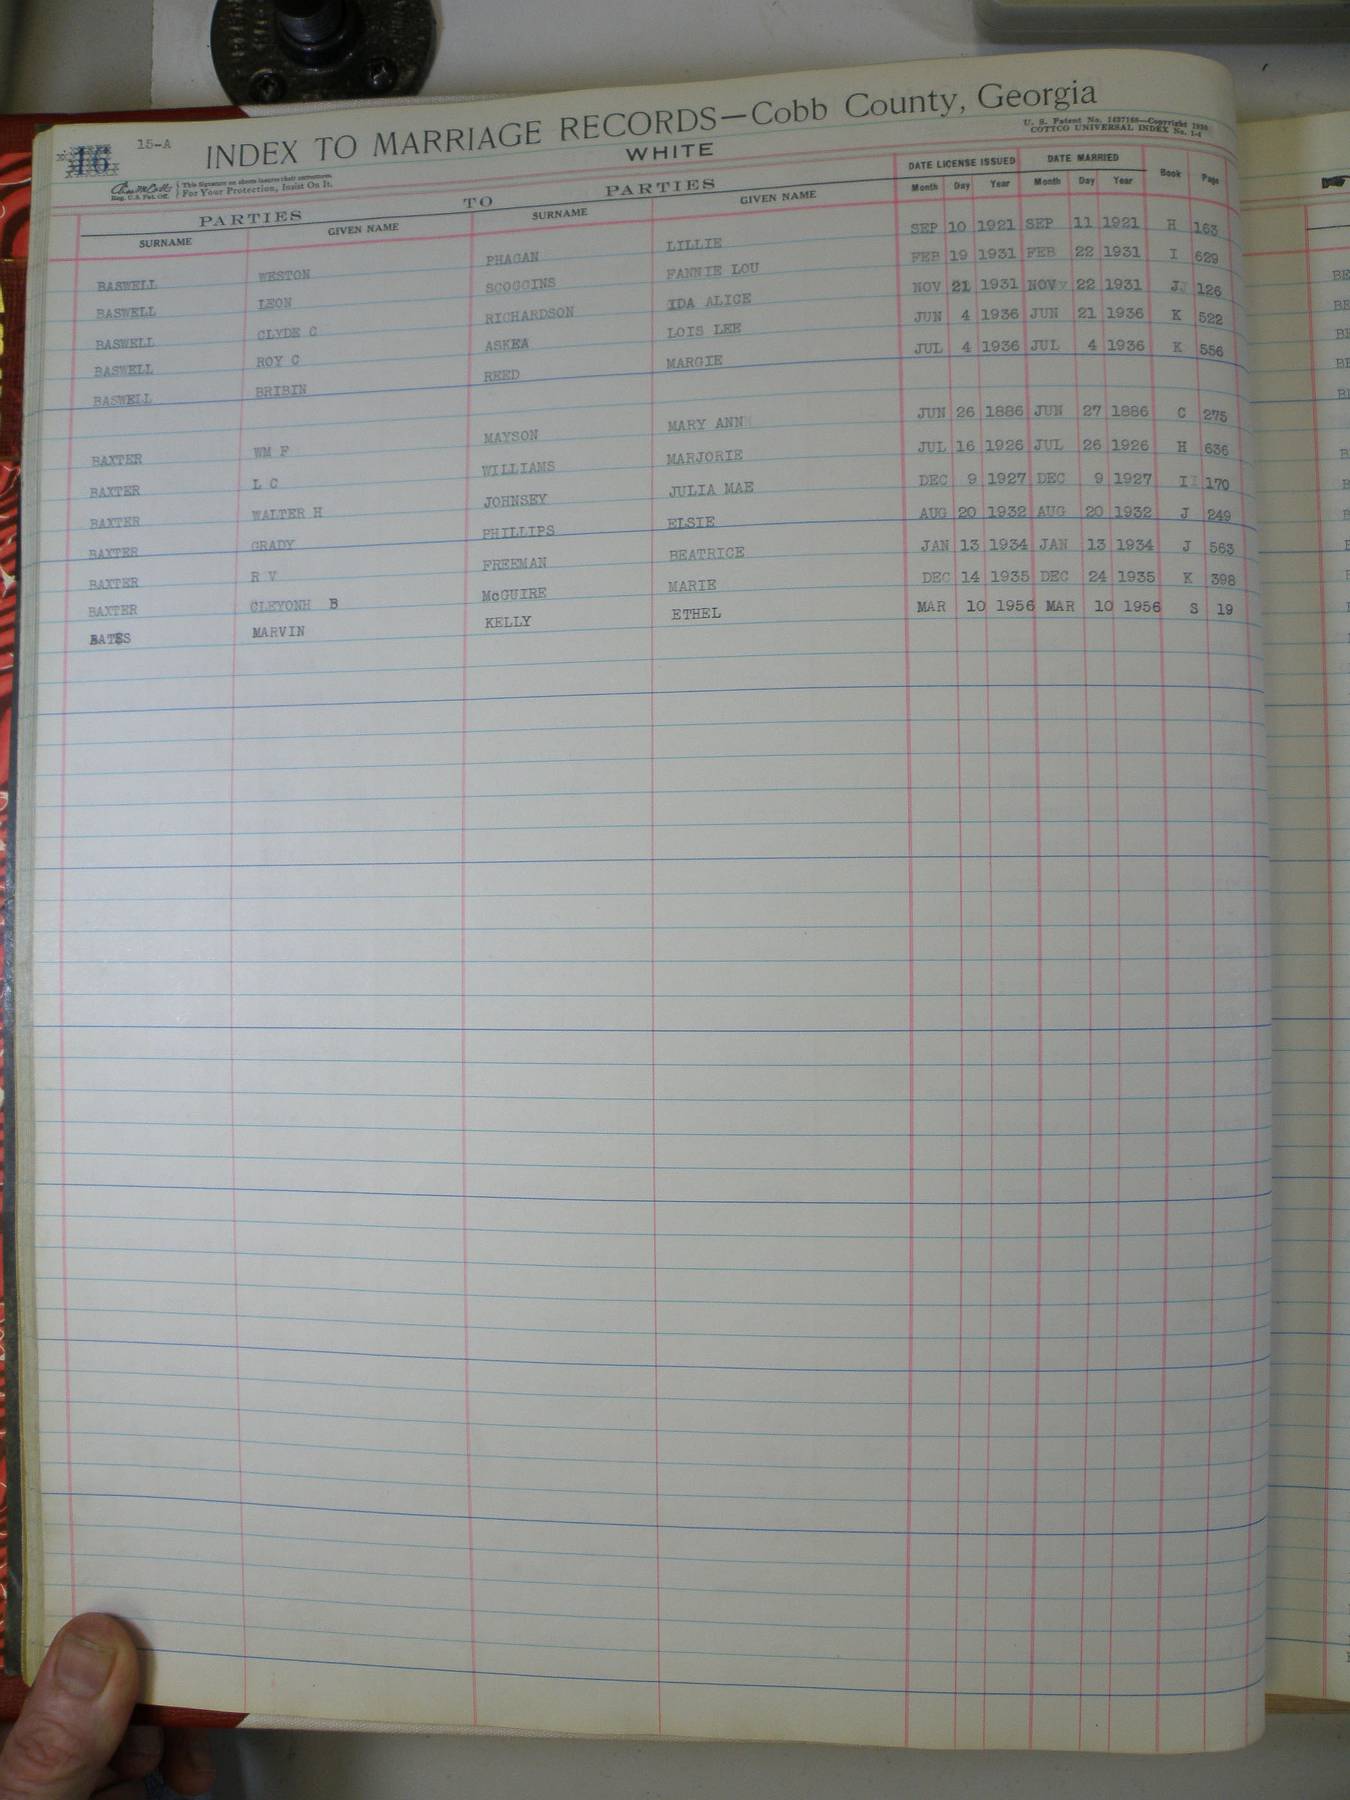 16 15-A
INDEX TO MARRIAGE RECORDS—Cobb County, Georgia
WHITE
U. S. Patent No. 1437166—Copyright 1930
COTTCO UNIVERSAL INDEX No. 1-4
Reg. U.S. Pat. Off. This Signature on sheets insures their correctness.
For Your Protection, Insist On It.
PARTIES TO PARTIES DATE LICENSE ISSUED DATE MARRIED Book Page
SURNAME GIVEN NAME SURNAME GIVEN NAME Month Day Year Month Day Year
BASWELL WESTON PHAGAN LILLIE SEP 10 1921 SEP 11 1921 H 163
BASWELL LEON SCOGGINS FANNIE LOU FEB 19 1931 FEB 22 1931 I 629
BASWELL CLYDE C RICHARDSON IDA ALICE NOV 21 1931 NOV 22 1931 J 126
BASWELL ROY C ASKEA LOIS LEE JUN 4 1936 JUN 21 1936 K 522
BASWELL BRIBIN REED MARGIE JUL 4 1936 JUL 4 1936 K 556
BAXTER WM F MAYSON MARY ANN JUN 26 1886 JUN 27 1886 C 275
BAXTER L C WILLIAMS MARJORIE JUL 16 1926 JUL 26 1926 H 636
BAXTER WALTER H JOHNSEY JULIA MAE DEC 9 1927 DEC 9 1927 I 170
BAXTER GRADY PHILLIPS ELSIE AUG 20 1932 AUG 20 1932 J 249
BAXTER R V FREEMAN BEATRICE JAN 13 1934 JAN 13 1934 J 563
BAXTER CLEYONH B McGUIRE MARIE DEC 14 1935 DEC 24 1935 K 398
BATES MARVIN KELLY ETHEL MAR 10 1956 MAR 10 1956 S 19